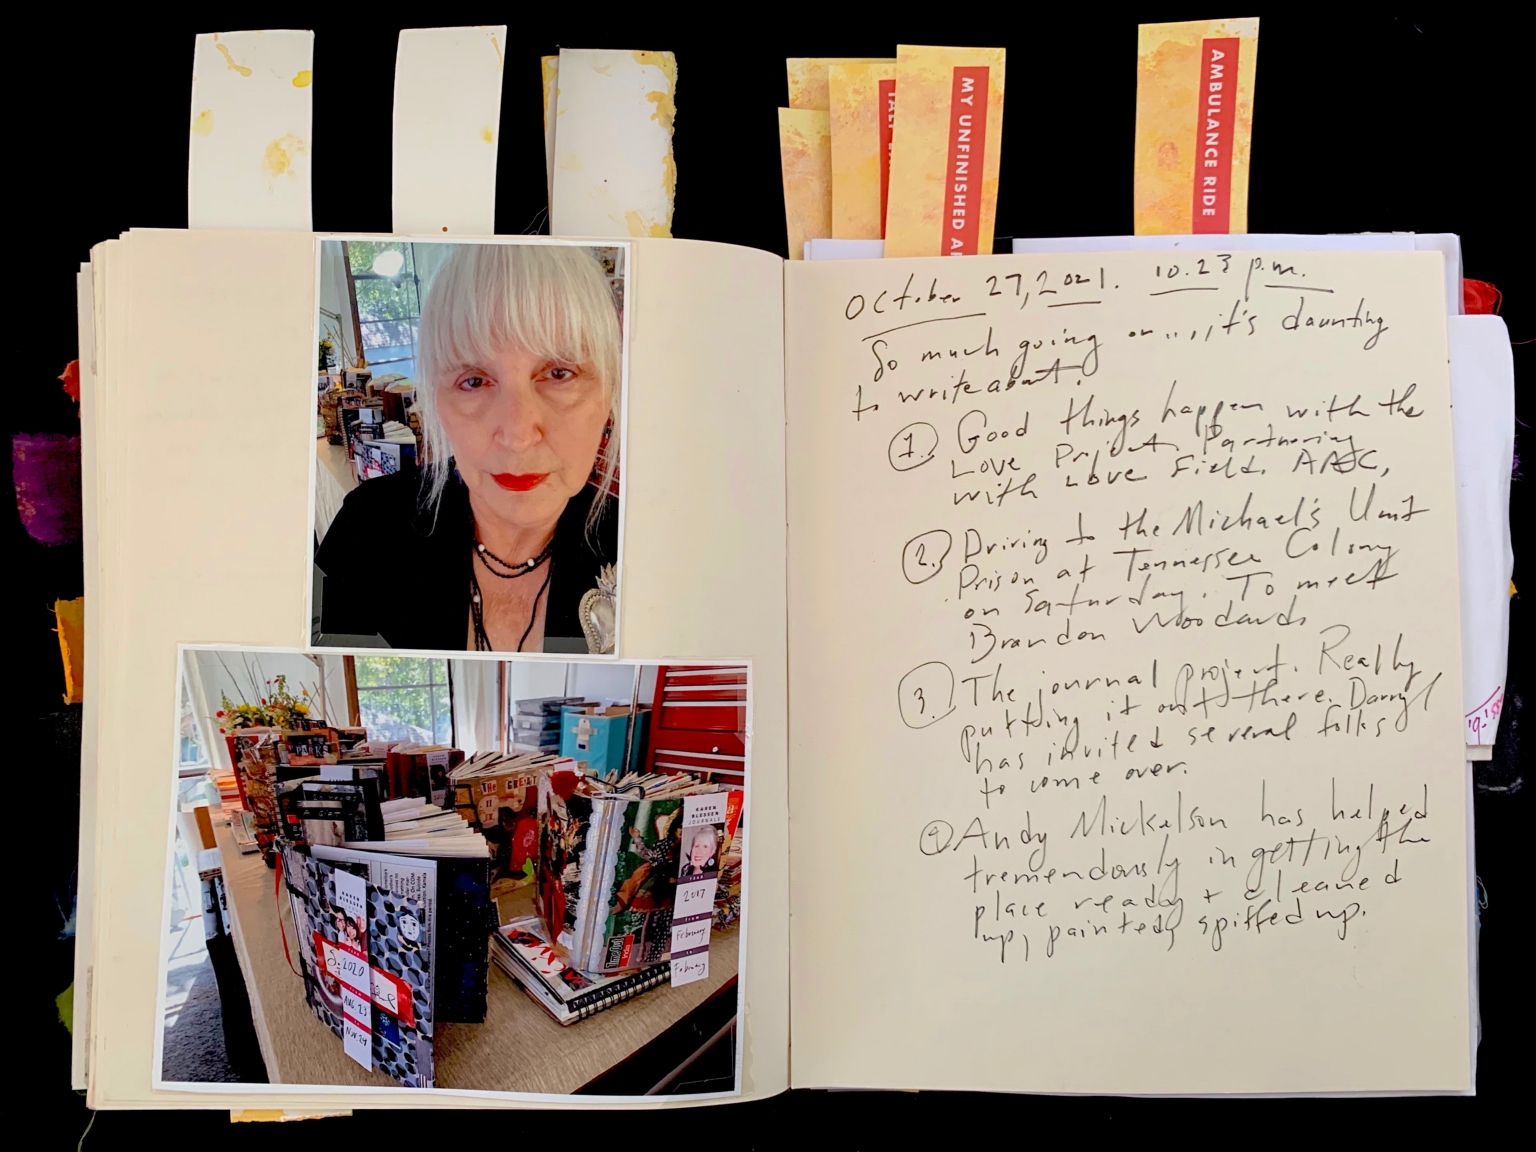 MY UNFINISHED
AMBULANCE RIDE
October 27, 2021. 10.23 p.m.
So much going on..., it's daunting
to write about.
1. Good things happen with the
Love Project. Partnering
with Love Field. AAGC,
2. Driving to the Michael's Unit
Prison at Tennessee Colony
on Saturday. To meet
Brandon Woodards
3. The journal project. Really
putting it out there. Darryl
has invited several folks
to come over.
4. Andy Mickelson has helped
tremendously in getting the
place ready + cleaned
up, painted, spiffed up.
THE GREAT
KAREN
BLESSEN
JOURNALS
YEAR
2017
FROM
February
TO
February
KAREN
BLESSEN
2020
AUG. 23
TO
Nov. 24